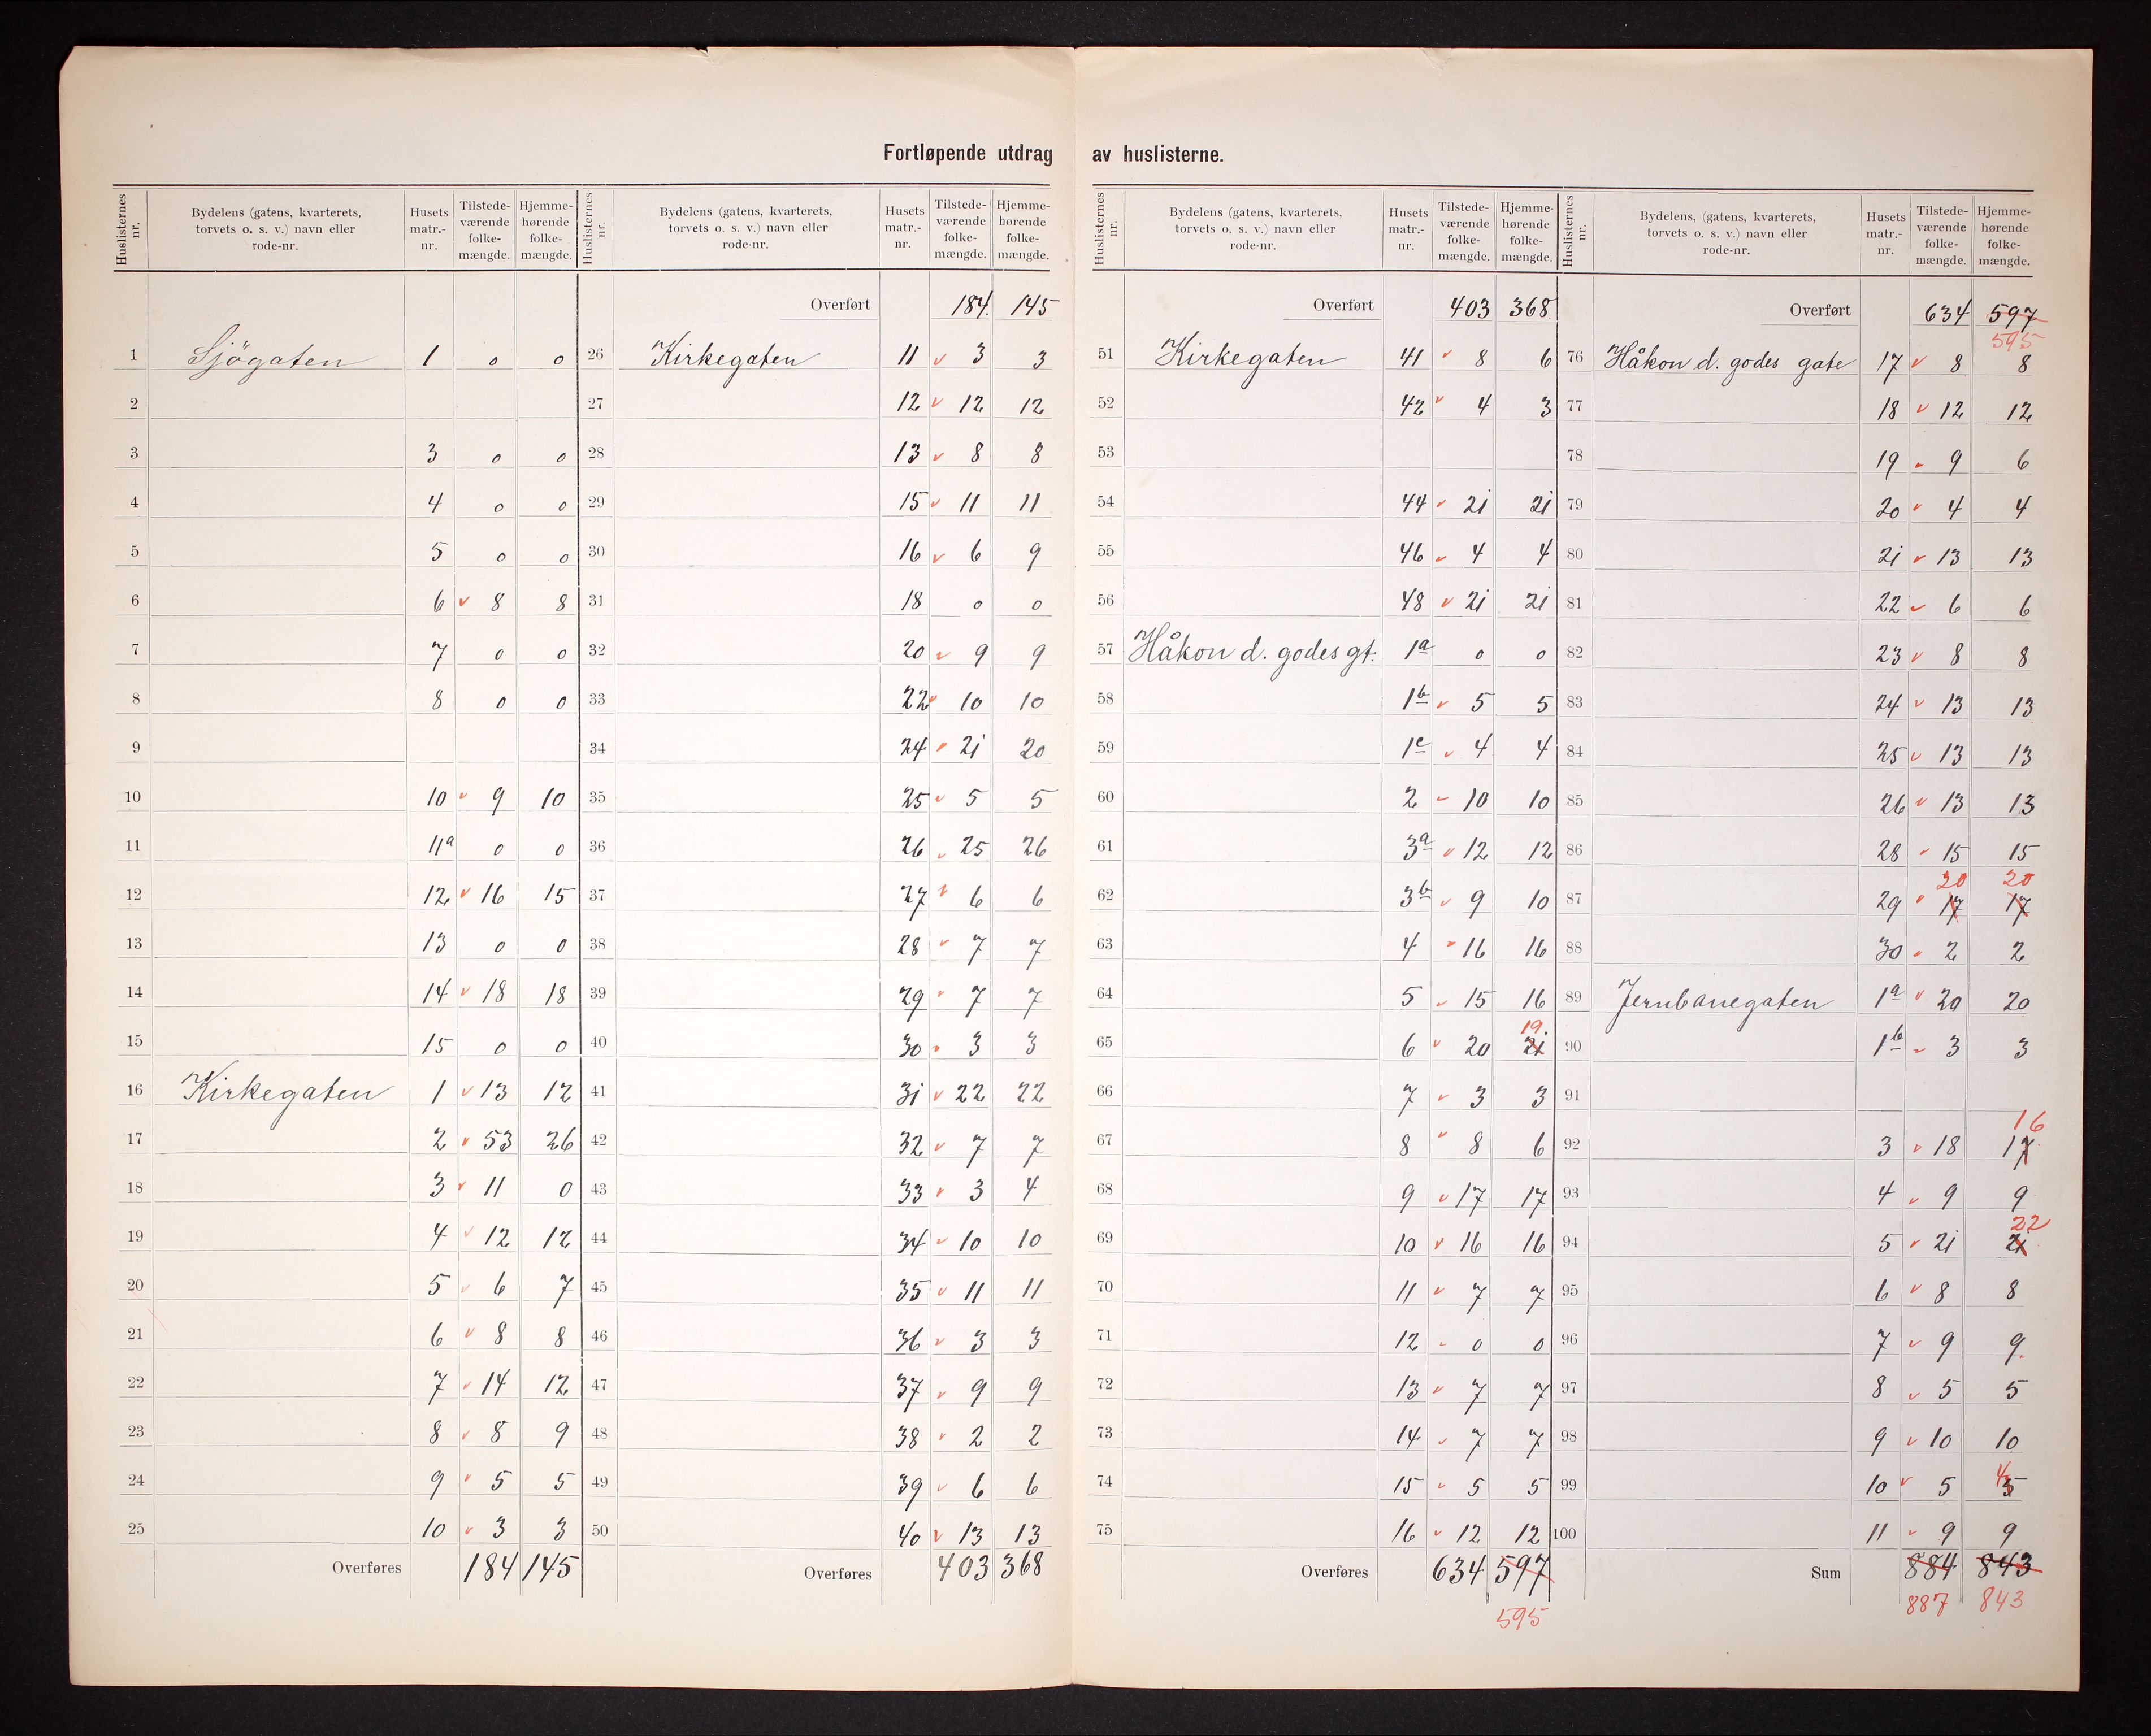 Fortløpende utdrag av huslisterne.
Huslisternes nr. | Bydelens (gatens, kvarterets, torvets o. s. v.) navn eller rode-nr. | Husets matr.-nr. | Tilstede-værende folke-mængde. | Hjemme-hørende folke-mængde.
1 Sjøgaten 1 0 0
2
3 3 0 0
4 4 0 0
5 5 0 0
6 6 v 8 8
7 7 0 0
8 8 0 0
9
10 10 v 9 10
11 11a 0 0
12 12 v 16 15
13 13 0 0
14 14 v 18 18
15 15 0 0
16 Kirkegaten 1 v 13 12
17 2 v 53 26
18 3 v 11 0
19 4 v 12 12
20 5 v 6 7
21 6 v 8 8
22 7 v 14 12
23 8 v 8 9
24 9 v 5 5
25 10 v 3 3
Overføres 184 145
Huslisternes nr. | Bydelens (gatens, kvarterets, torvets o. s. v.) navn eller rode-nr. | Husets matr.-nr. | Tilstede-værende folke-mængde. | Hjemme-hørende folke-mængde.
Overført 184. 145
26 Kirkegaten 11 v 3 3
27 12 v 12 12
28 13 v 8 8
29 15 v 11 11
30 16 v 6 9
31 18 0 0
32 20 v 9 9
33 22 v 10 10
34 24 v 21 20
35 25 v 5 5
36 26 v 25 26
37 27 v 6 6
38 28 v 7 7
39 29 v 7 7
40 30 v 3 3
41 31 v 22 22
42 32 v 7 7
43 33 v 3 4
44 34 v 10 10
45 35 v 11 11
46 36 v 3 3
47 37 v 9 9
48 38 v 2 2
49 39 v 6 6
50 40 v 13 13
Overføres 403 368
Huslisternes nr. | Bydelens (gatens, kvarterets, torvets o. s. v.) navn eller rode-nr. | Husets matr.-nr. | Tilstede-værende folke-mængde. | Hjemme-hørende folke-mængde.
Overført 403 368
51 Kirkegaten 41 v 8 6
52 42 v 4 3
53
54 44 v 21 21
55 46 v 4 4
56 48 v 21 21
57 Håkon d. godes gt. 1a 0 0
58 1b v 5 5
59 1c v 4 4
60 2 v 10 10
61 3a v 12 12
62 3b v 9 10
63 4 v 16 16
64 5 v 15 16
65 6 v 20 21 19.
66 7 v 3 3
67 8 v 8 6
68 9 v 17 17
69 10 v 16 16
70 11 v 7 7
71 12 v 0 0
72 13 v 7 7
73 14 v 7 7
74 15 v 5 5
75 16 v 12 12
Overføres 634 597
595
Huslisternes nr. | Bydelens, (gatens, kvarterets, torvets o. s. v.) navn eller rode-nr. | Husets matr.-nr. | Tilstede-værende folke-mængde. | Hjemme-hørende folke-mængde.
Overført 634 597
595
76 Håkon d. godes gate 17 v 8 8
77 18 v 12 12
78 19 v 9 6
79 20 v 4 4
80 21 v 13 13
81 22 v 6 6
82 23 v 8 8
83 24 v 13 13
84 25 v 13 13
85 26 v 13 13
86 28 v 15 15
20 20
87 29 v 17 17
88 30 v 2 2
89 Jernbanegaten 1a v 20 20
90 1b v 3 3
91
16
92 3 v 18 17
93 4 v 9 9
22
94 5 v 21 21
95 6 v 8 8
96 7 v 9 9.
97 8 v 5 5
98 9 v 10 10
99 10 v 5 5 4
100 11 v 9 9
Sum 884 843
887 843